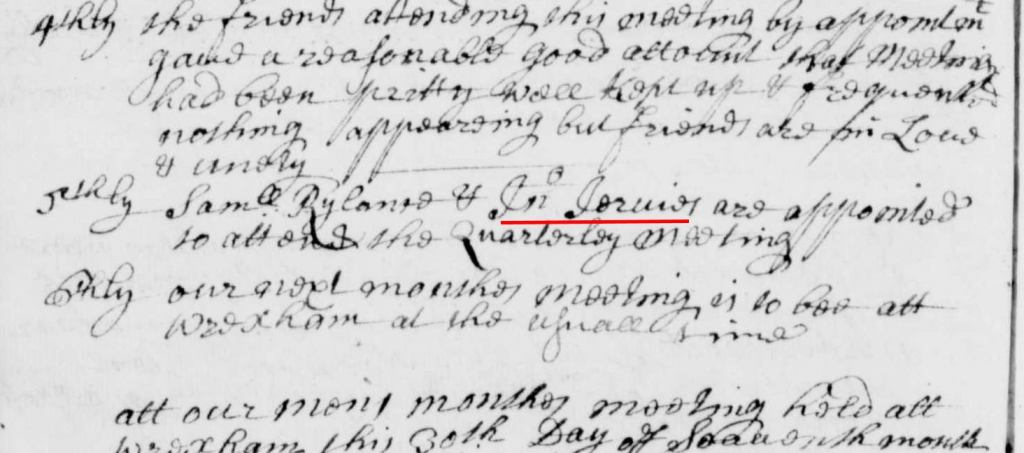 4thly the friends attending this meeting by appointmt
gave a reasonable good account that Meeting
had been pritty well kept up & frequentd
nothing appeareing but friends are in Love
& unety
5thly Samll Rylance & Jno Jervies are appointed
to attend the Quarterley Meeting
6thly our next monthes meeting is to bee att
Wrexham at the usuall time
att our mens monthes meeting held att
Wrexham this 30th Day off Seaventh month